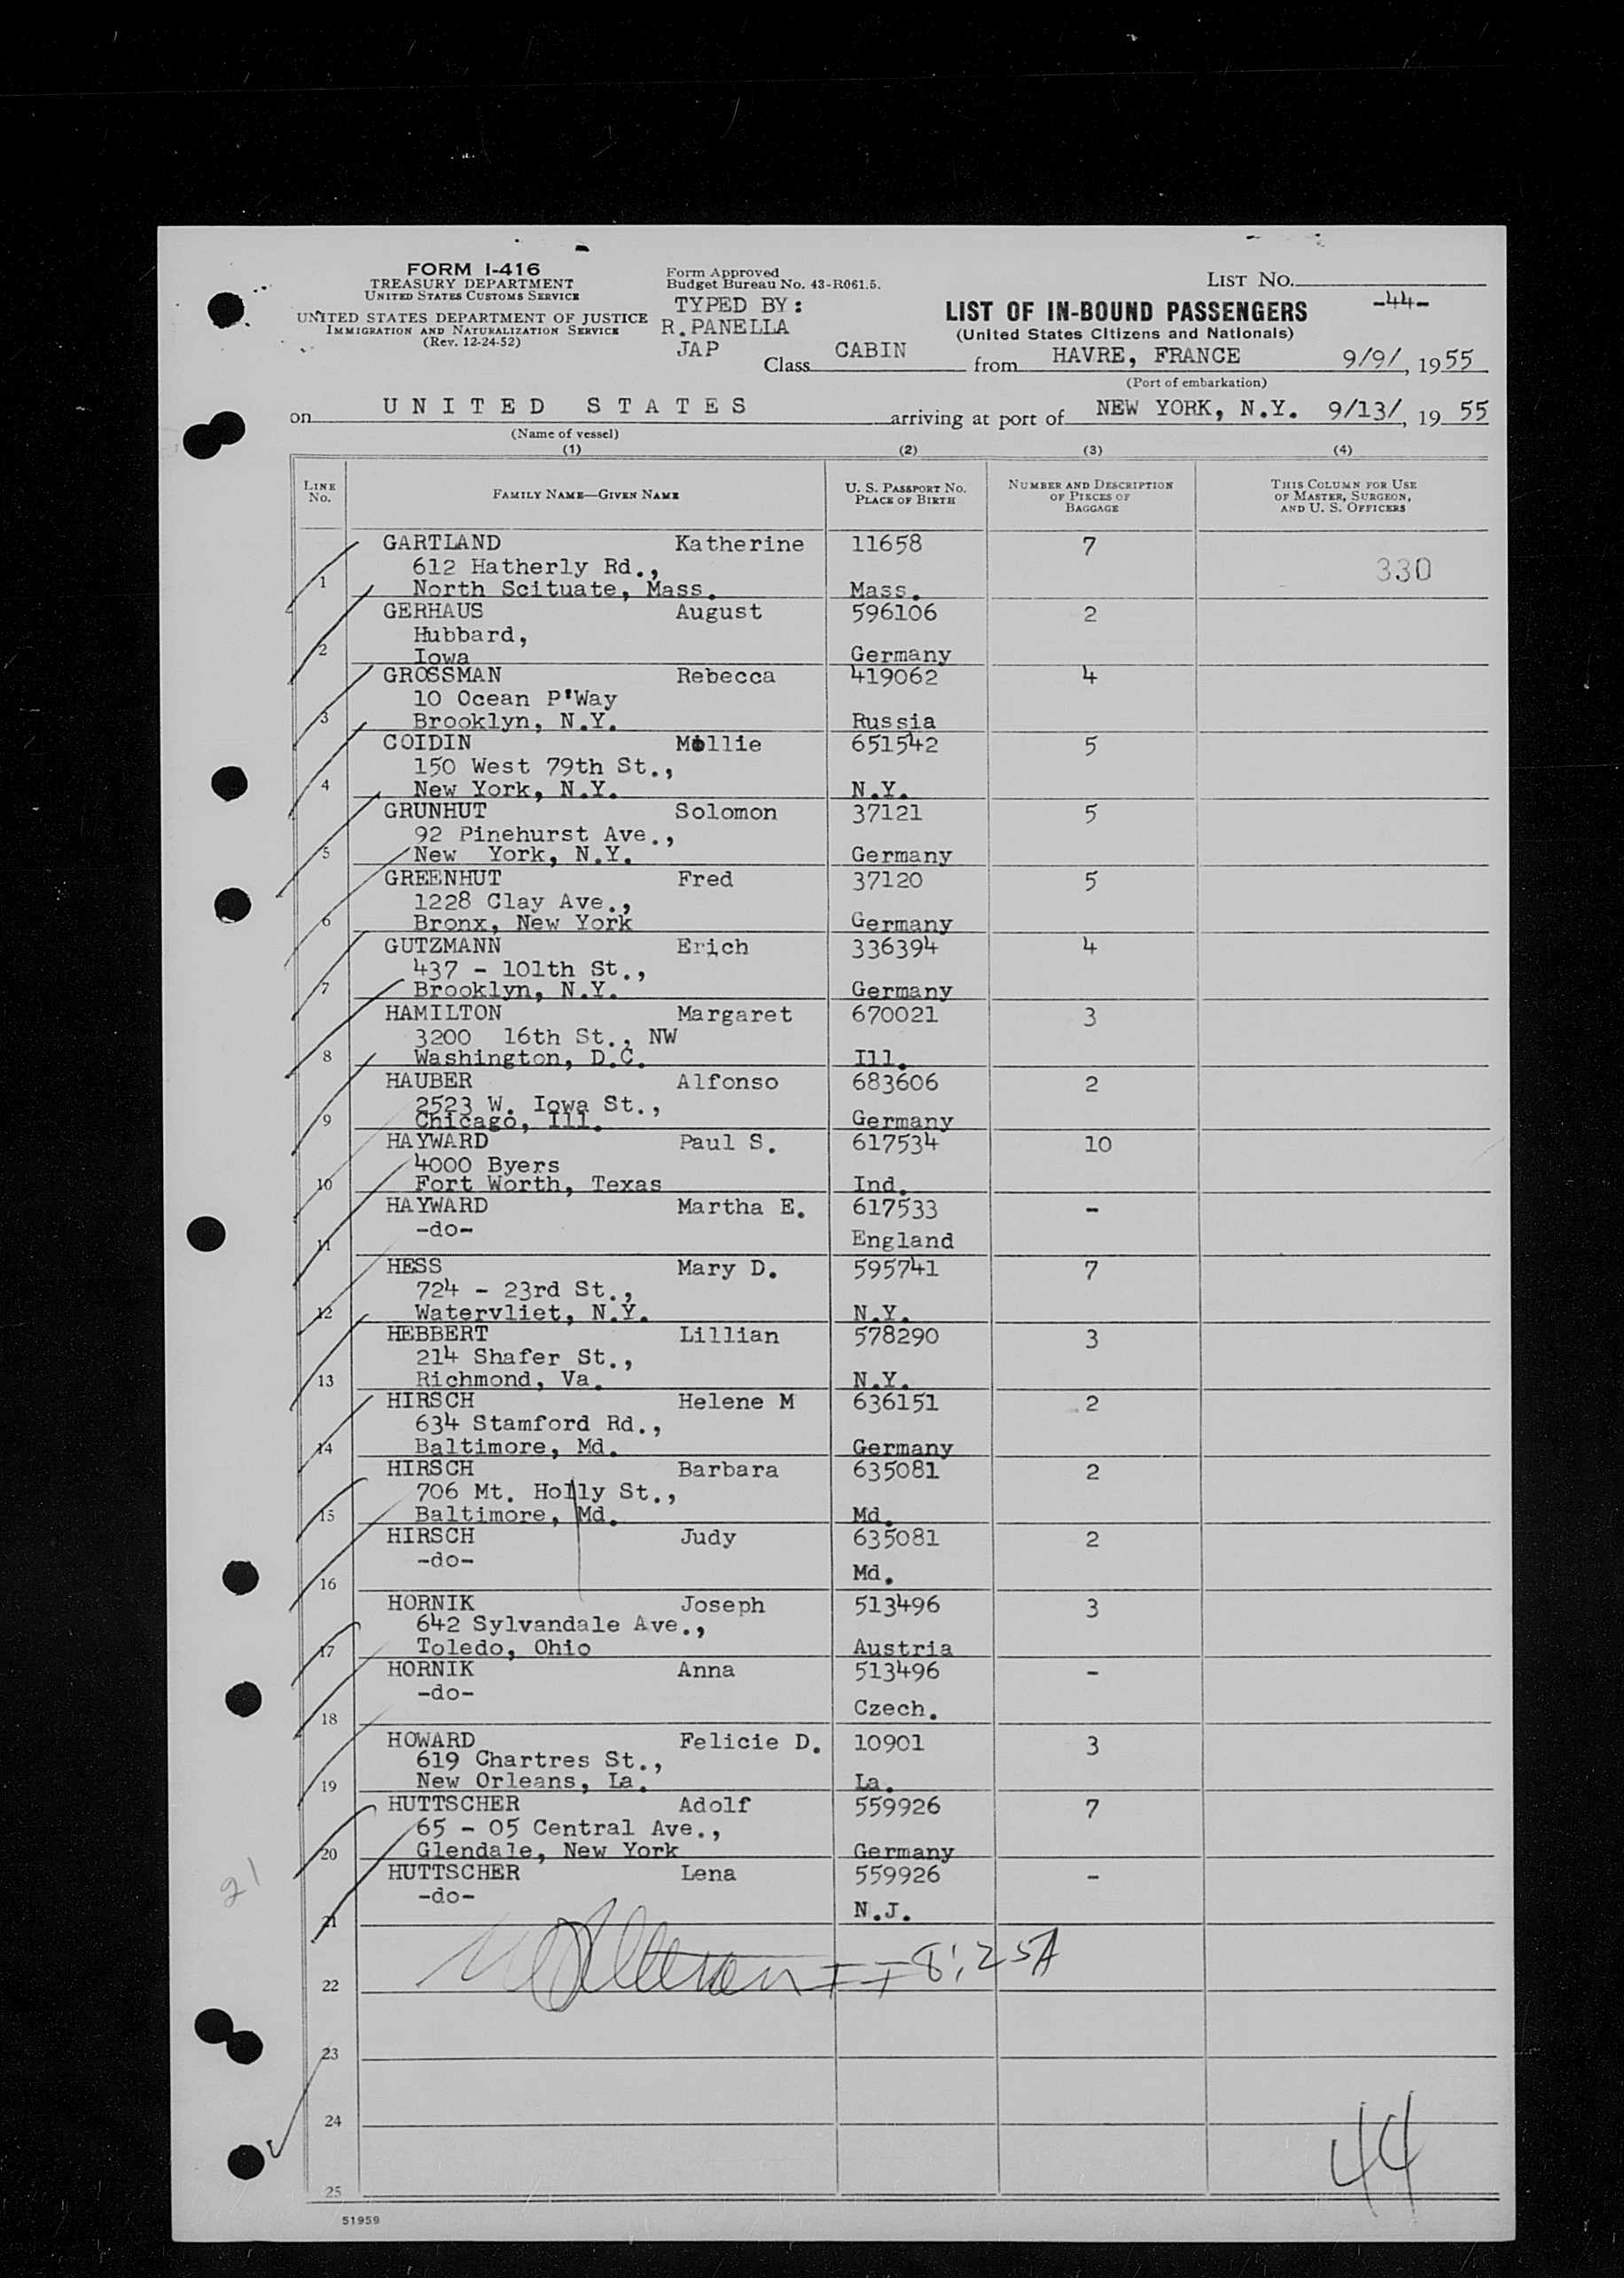 FORM I-416
TREASURY DEPARTMENT
UNITED STATES CUSTOMS SERVICE
UNITED STATES DEPARTMENT OF JUSTICE
IMMIGRATION AND NATURALIZATION SERVICE
(Rev. 12-24-52)
Form Approved
Budget Bureau No. 43-R061.5.
TYPED BY:
R.PANELLA
JAP
LIST NO.
-44-
LIST OF IN-BOUND PASSENGERS
(United States Citizens and Nationals)
Class CABIN from HAVRE, FRANCE 9/9/, 1955
(Port of embarkation)
on UNITED STATES arriving at port of NEW YORK, N.Y. 9/13/, 19 55
(Name of vessel)
(1) (2) (3) (4)
LINE NO. FAMILY NAME—GIVEN NAME U. S. PASSPORT NO. PLACE OF BIRTH NUMBER AND DESCRIPTION OF PIECES OF BAGGAGE THIS COLUMN FOR USE OF MASTER, SURGEON, AND U. S. OFFICERS
GARTLAND Katherine 11658 7
612 Hatherly Rd., 330
1 North Scituate, Mass. Mass.
GERHAUS August 596106 2
Hubbard,
2 Iowa Germany
GROSSMAN Rebecca 419062 4
10 Ocean P'Way
3 Brooklyn, N.Y. Russia
COIDIN Mollie 651542 5
150 West 79th St.,
4 New York, N.Y. N.Y.
GRUNHUT Solomon 37121 5
92 Pinehurst Ave.,
5 New York, N.Y. Germany
GREENHUT Fred 37120 5
1228 Clay Ave.,
6 Bronx, New York Germany
GUTZMANN Erich 336394 4
437 - 101th St.,
7 Brooklyn, N.Y. Germany
HAMILTON Margaret 670021 3
3200 16th St., NW
8 Washington, D.C. Ill.
HAUBER Alfonso 683606 2
2523 W. Iowa St.,
9 Chicago, Ill. Germany
HAYWARD Paul S. 617534 10
4000 Byers
10 Fort Worth, Texas Ind.
HAYWARD Martha E. 617533 -
-do-
11 England
HESS Mary D. 595741 7
724 - 23rd St.,
12 Watervliet, N.Y. N.Y.
HEBBERT Lillian 578290 3
214 Shafer St.,
13 Richmond, Va. N.Y.
HIRSCH Helene M 636151 2
634 Stamford Rd.,
14 Baltimore, Md. Germany
HIRSCH Barbara 635081 2
706 Mt. Holly St.,
15 Baltimore, Md. Md.
HIRSCH Judy 635081 2
-do-
16 Md.
HORNIK Joseph 513496 3
642 Sylvandale Ave.,
17 Toledo, Ohio Austria
HORNIK Anna 513496 -
-do-
18 Czech.
HOWARD Felicie D. 10901 3
619 Chartres St.,
19 New Orleans, La. La.
HUTTSCHER Adolf 559926 7
65 - 05 Central Ave.,
20 Glendale, New York Germany
HUTTSCHER Lena 559926 -
-do-
21 N.J.
21
8:25A
22
23
24
25
44
51959